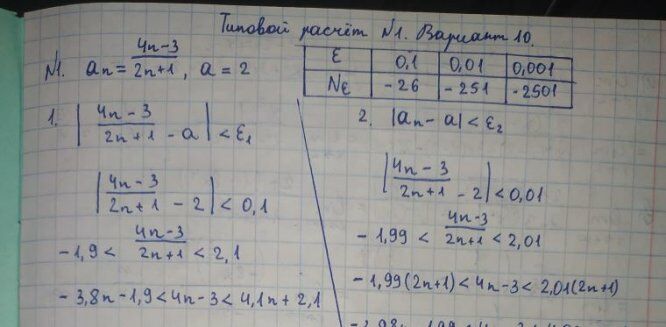 Типовой расчёт №1. Вариант 10.
№1. aₙ = (4n-3)/(2n+1), a = 2
ε 0,1 0,01 0,001
Nε -26 -251 -2501
1. |(4n-3)/(2n+1) - a| < ε₁
|(4n-3)/(2n+1) - 2| < 0,1
-1,9 < (4n-3)/(2n+1) < 2,1
-3,8n-1,9<4n-3<4,1n+2,1
2. |aₙ - a| < ε₂
|(4n-3)/(2n+1) - 2| < 0,01
-1,99 < (4n-3)/(2n+1) < 2,01
-1,99(2n+1)<4n-3<2,01(2n+1)